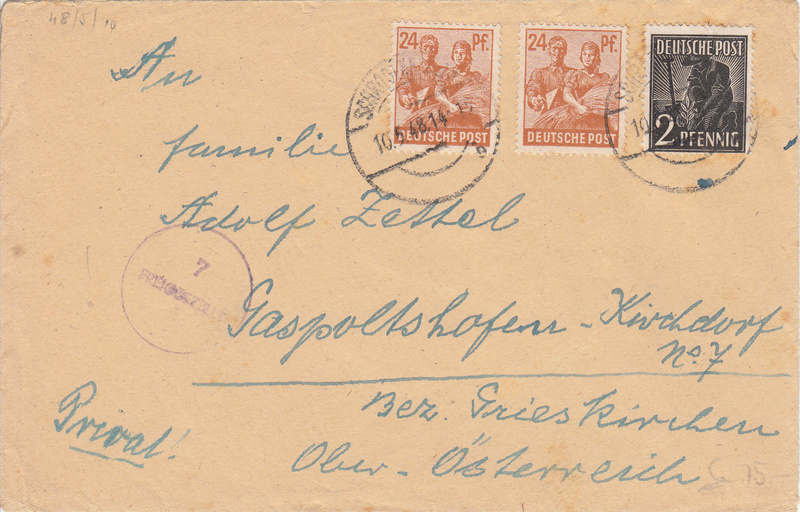 48/5/10
24 Pf.
DEUTSCHE POST
24 Pf.
DEUTSCHE POST
DEUTSCHE POST
2 PFENNIG
10.5.48.14
b
10.
An
Familie
Adolf Zettel
7
Gaspoltshofen - Kirchdorf
No. 7
Bez. Grieskirchen
Privat!
Ober-Österreich
15.-